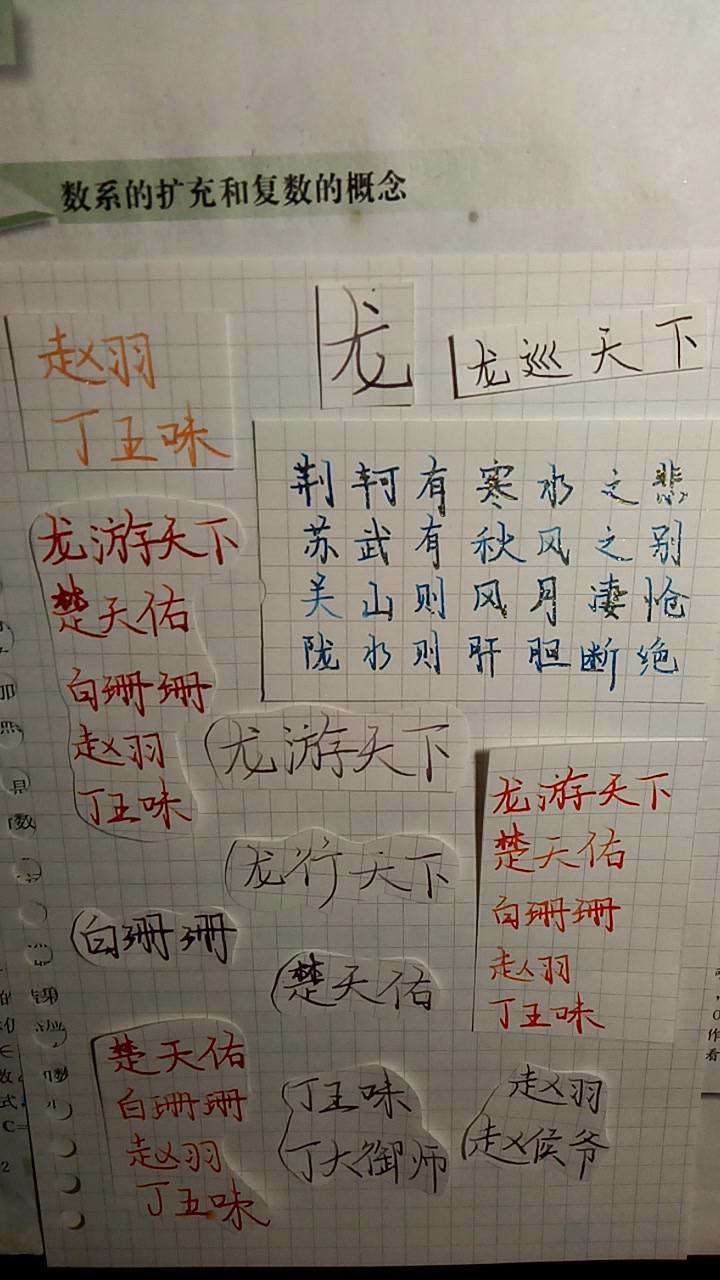 数系的扩充和复数的概念
赵羽
丁五味
龙
龙巡天下
荆轲有寒水之悲
苏武有秋风之别
关山则风月凄怆
陇水则肝胆断绝
龙游天下
楚天佑
白珊珊
赵羽
丁五味
龙游天下
龙行天下
白珊珊
楚天佑
龙游天下
楚天佑
白珊珊
赵羽
丁五味
楚天佑
白珊珊
赵羽
丁五味
丁五味
丁大御师
赵羽
赵侯爷